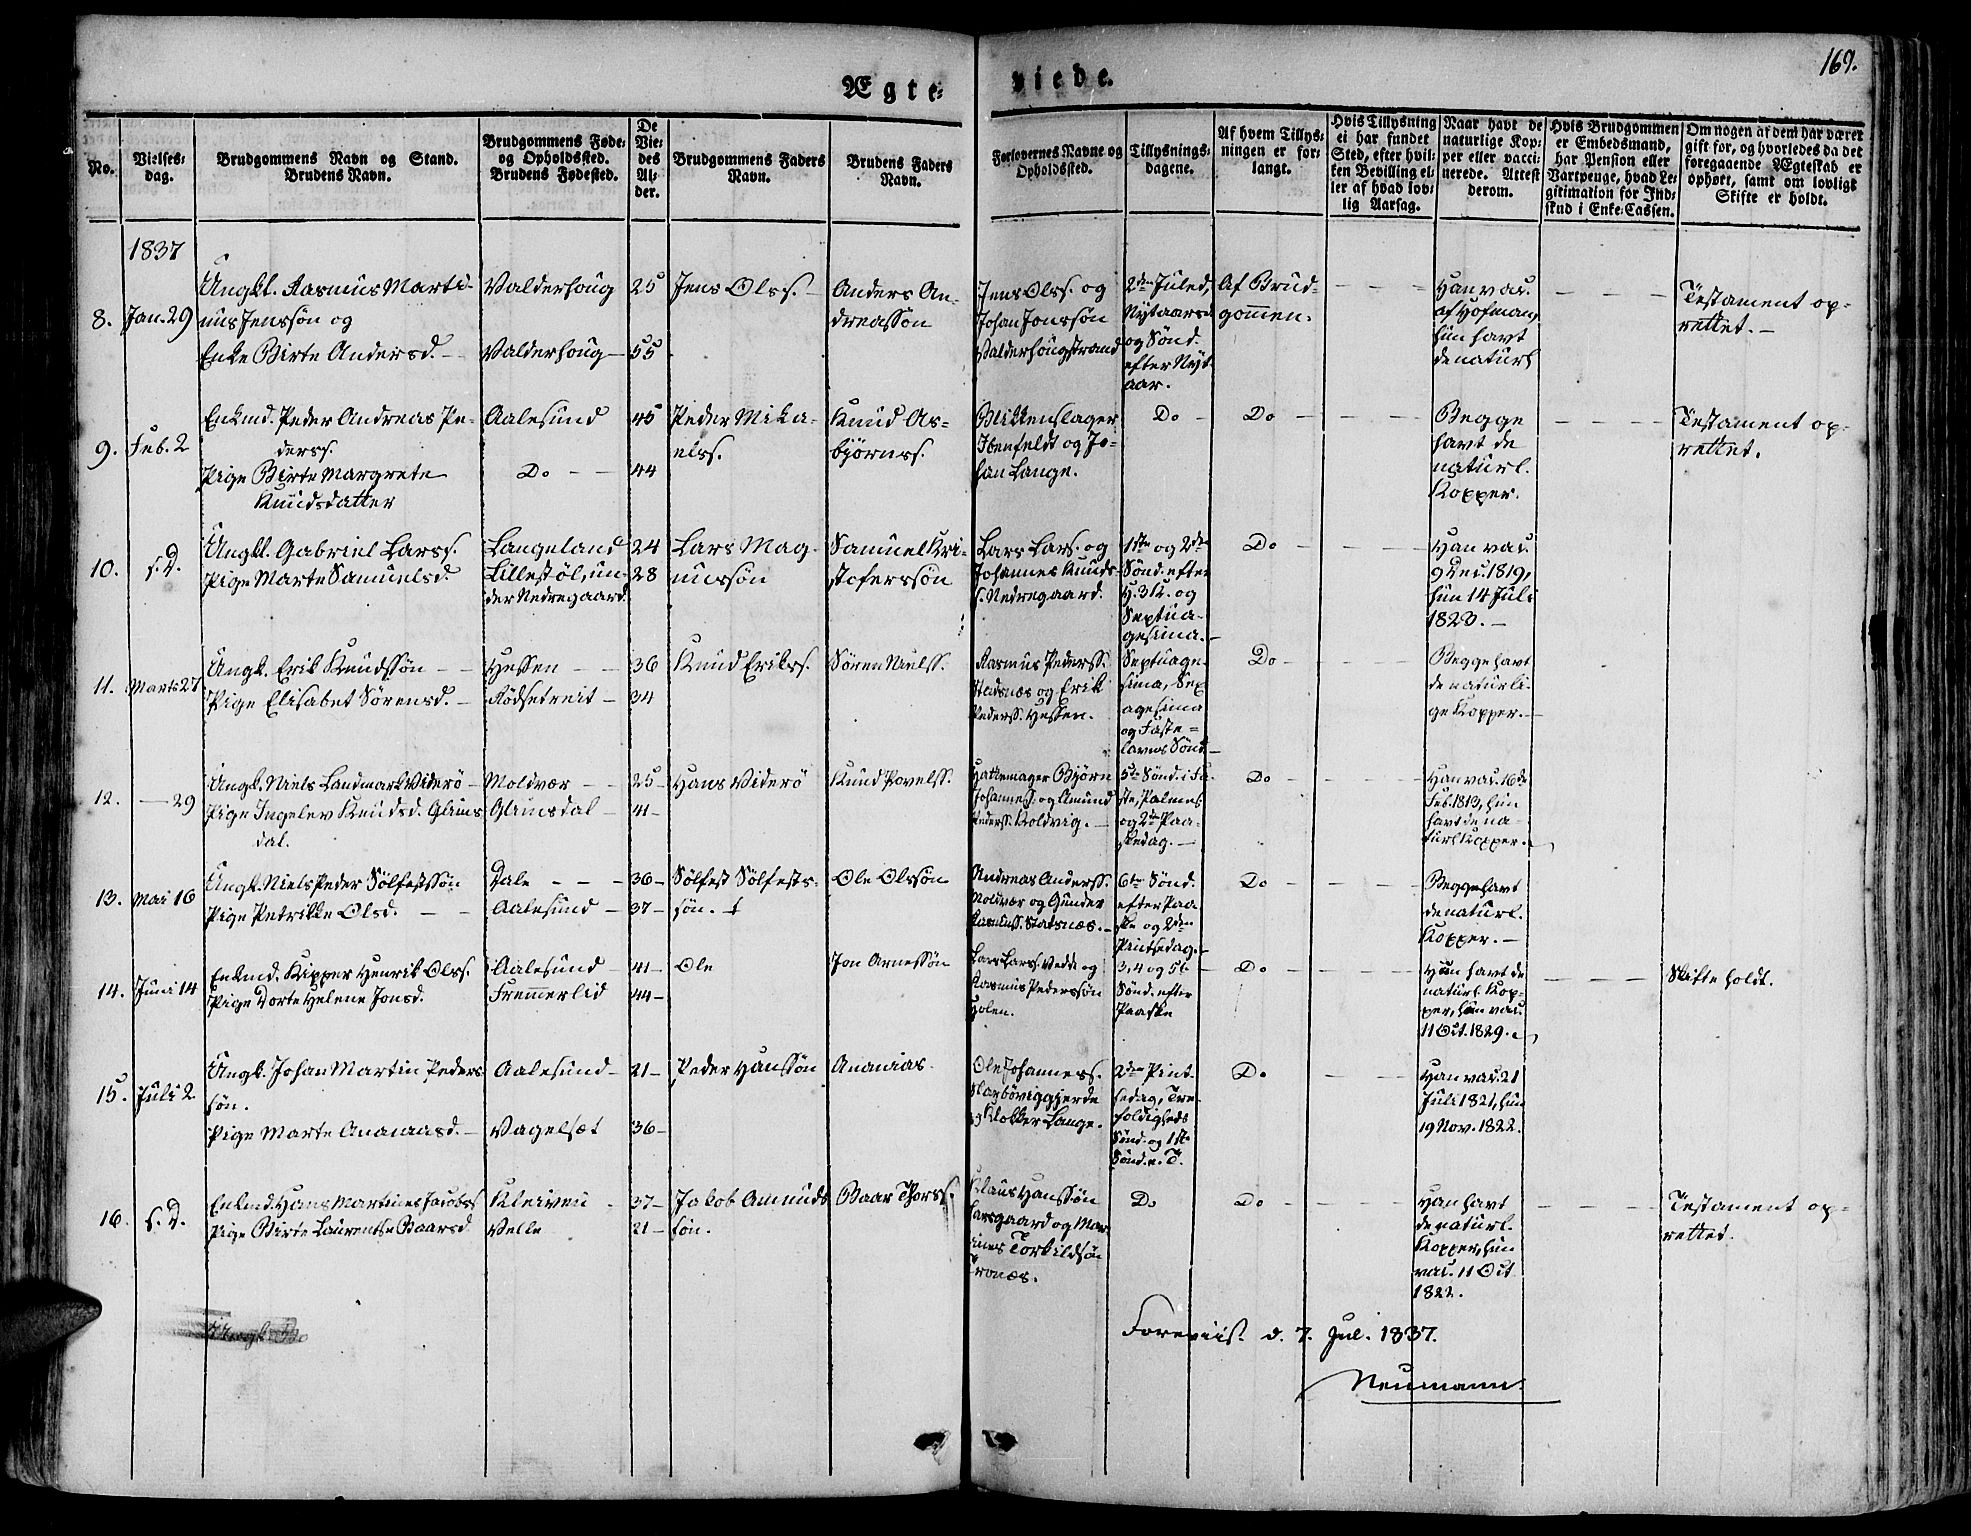 169.
Ægte-
viede.
No.
Vielses-
dag.
Brudgommens Navn og Stand.
Brudens Navn.
Brudgommens Føde-
og Opholdssted.
Brudens Fødested.
De
Vie-
des
Al-
der.
Brudgommens Faders
Navn.
Brudens Faders
Navn.
Forlovernes Navne og
Opholdssted.
Tillysnings-
dagene.
Af hvem Tillys-
ningen er for-
langt.
Hvis Tillysning
ei har fundet
Sted, efter hvil-
ken Bevilling el-
ler af hvad lov-
lig Aarsag.
Naar havt de
naturlige Kop-
per eller vacci-
nerede. Attest
derom.
Hvis Brudgommen
er Embedsmand,
har Pension eller
Vartpenge, hvad Le-
gitimation for Ind-
skud i Enke-Cassen.
Om nogen af dem har været
gift før, og hvorledes da det
foregaaende Ægteskab er
ophørt, samt om lovligt
Skifte er holdt.
1837
8.
Jan. 29
Ungkl. Rasmus Marti-
nus Jenssøn og
Enke Birte Andersd.
Valderhoug
Valderhoug
25
55
Jens Olss.
Anders An-
dreassøn
Jens Olss. og
Johan Jonssøn
Valderhougstrand
2den Juled,
Nytaarsd.
og Sønd.
efter Nyt-
aar.
Af Brud-
gommen.
Han vac.
af Hofman,
hun havt
de naturl
Testament op-
rettet.
9.
Feb. 2
Enkmd. Peder Andreas Pe-
derss.
Pige Birte Margrete
Knudsdatter
Aalesund
Do
45
44
Peder Mika-
elss.
Knud As-
bjørnss.
Bukkenslager
Ibenfeldt og Jo-
han Lange.
Do
Do
Begge
havt de
naturl.
Kopper.
Testament op-
rettet.
10.
s. D.
Ungkl. Gabriel Larss.
Pige Marte Samuelsd.
Langeland
Lillestøl, un-
der Nedregaard
24
28
Lars Mag-
nussøn
Samuel Kri-
stoferssøn
Lars Lars. og
Johannes Knuds-
s. Nedregaard.
1ste og 2den
Sønd. efter
H. 3 K. og
Septua-
gesima.
Do
Han vac.
9 Dec. 1819,
hun 14 Juli
1823.
11.
Marts 27
Ungk. Erik Knudssøn
Pige Elisabet Sørensd.
Hessen
Rødsetreit
36
34
Knud Erikss.
Søren Nielss.
Rasmus Pederss.
og Erik
Pederss. Hessen.
Septuage-
sima, Sex
agesima
og Faste-
lavns Sønd
Do
Begge havt
de naturli-
ge Kopper.
12.
29
Ungk. Niels Landmark Viderø
Pige Ingelev Knudsd. Gluus
dal.
Moldvær
Gluusdal
25
41
Hans Viderø
Knud Povelss.
Hattemager Bjørn
Johanness. og Amund
Pederss. Koldvig.
5te Sønd. i Fa-
ste, Palmes.
og 2den Paa-
skedag.
Do
Han vac. 16de
Feb. 1813, hun
havt de na-
turl Kopper.
13.
Mai 16
Ungk. Niels Peder Sølfestssøn
Pige Petrikke Olsd.
Dale
Aalesund
36
37
Sølfest Sølfests-
søn. †
Ole Olssøn
Andreas Anderss.
Moldvær og Gunder
Rasmuss. Statsnæs.
6te Sønd.
efter Paa-
ske og 2den
Pintsedag.
Do
Begge havt
de naturl.
Kopper.
14.
Juni 14
Enkmd. Kipper Henrik Olss.
Pige Dorte Helene Jonsd.
Aalesund
Fremmerlid
41
44
Ole
Jon Arnessøn
Lars Larss. Vedde og
Rasmus Pederssøn
Holen.
3, 4 og 5te
Sønd. efter
Paaske
Do
Han havt de
naturl. Kop-
per, hun vac.
11 Oct. 1829.
Skifte holdt.
15.
Juli 2
Ungk. Johan Martin Peders
søn.
Pige Marte Ananiasd.
Aalesund
Vagelsæt
21
36
Peder Hanssøn
Ananias.
Ole Johanness.
Slagbøviggjerde
og Klokker Lange.
2den Pint-
sedag, Tre-
foldigheds
Sønd. og 1ste
Sønd. e. T.
Do.
Han vac. 21
Juli 1821, hun
19 Nov. 1822.
16.
s. D.
Enkmd. Hans Martines Jacobss
Pige Birte Laurentse Baarsd
Kleiven
Velle
37
21
Jakob Amunds
søn.
Baar Thorss.
Klaus Hanssøn
Larsgaard og Mar
tines Torkildsøn
Tronæs.
Do
Do
Han havt
de naturl.
Kopper, hun
vac. 11 Oct
1822.
Testament op-
rettet.
Foreviist. d. 7. Jul. 1837.
Neumann.